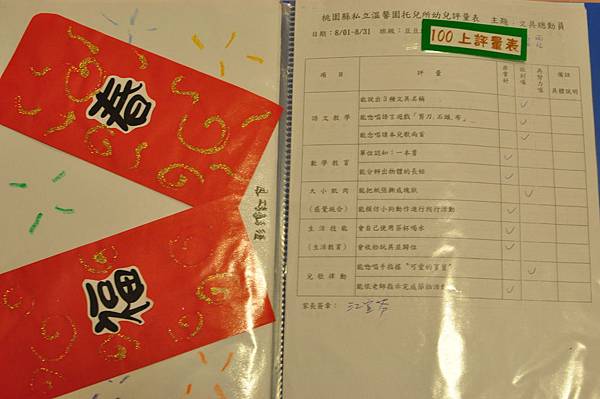 春
福
桃園縣私立溫馨園托兒所幼兒評量表 主題:文具總動員
日期:8/01~8/31 班級:豆豆
100上評量表
項 目 評 量 非常好 做到囉 再努力喔 備註 具體說明
語文教學 能說出3種文具名稱
能唸唱語言遊戲「剪刀、石頭、布」
能唸唱課本兒歌兩首
數學教育 單位認知:一本書
能分辨出物體的長短
大小肌肉 能把紙張撕成塊狀
(感覺統合) 能模仿小狗動作進行爬行活動
生活技能 會自己使用茶杯喝水
(生活教育) 會收拾玩具並歸位
兒歌律動 能唸唱手指謠"可愛的寶寶"
能依老師指示完成節拍活動
家長簽章: